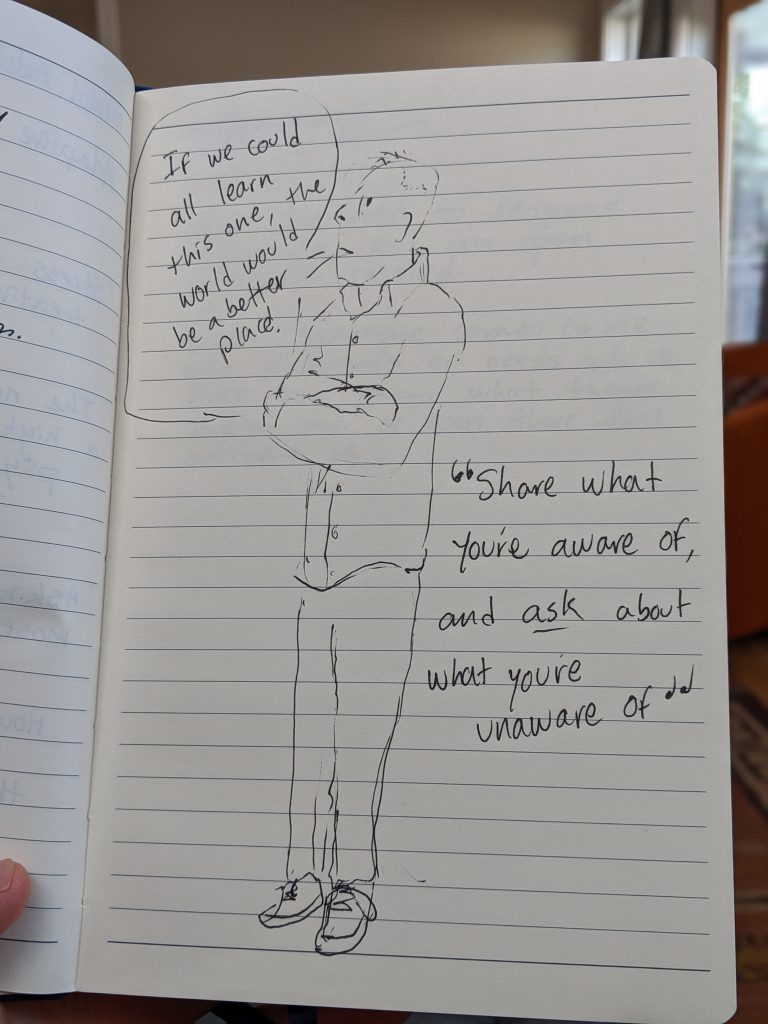 If we could
all learn
this one, the
world would
be a better
place.
“Share what
you're aware of,
and ask about
what you're
unaware of”